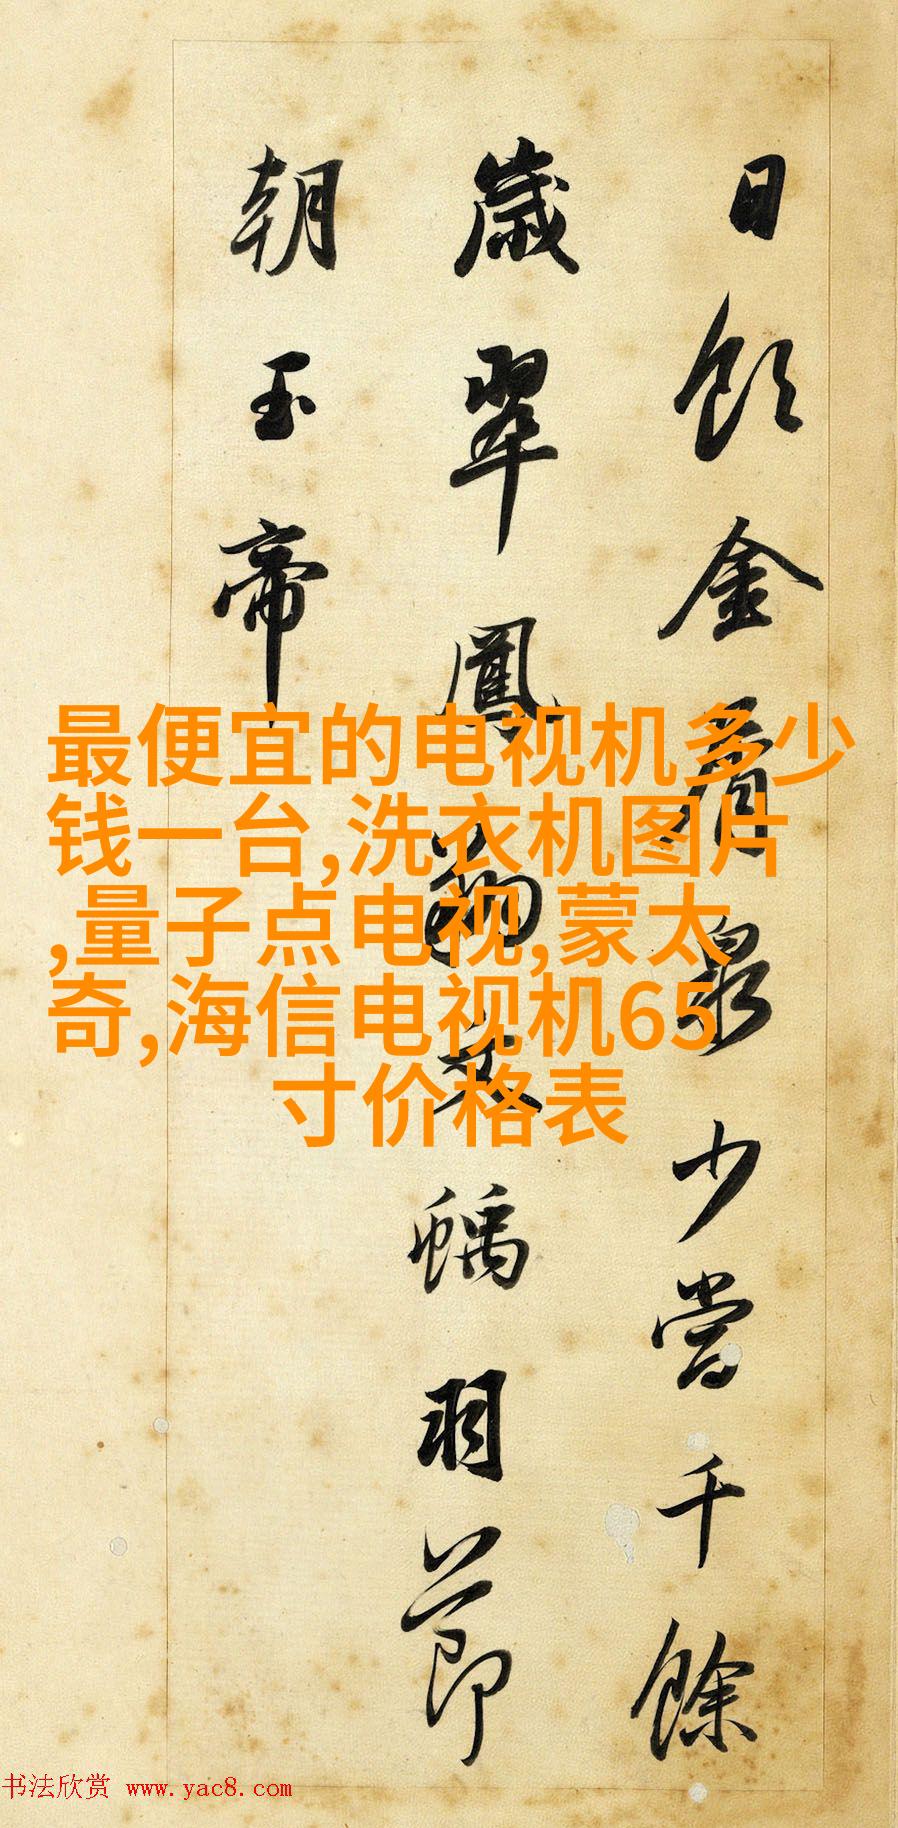 日飲金屑泉少當千餘
歲翠鳳翔文螭羽節
朝玉帝
最便宜的电视机多少
钱一台,洗衣机图片
,量子点电视,蒙太
奇,海信电视机65
寸价格表
书法欣赏 www.yac8.com